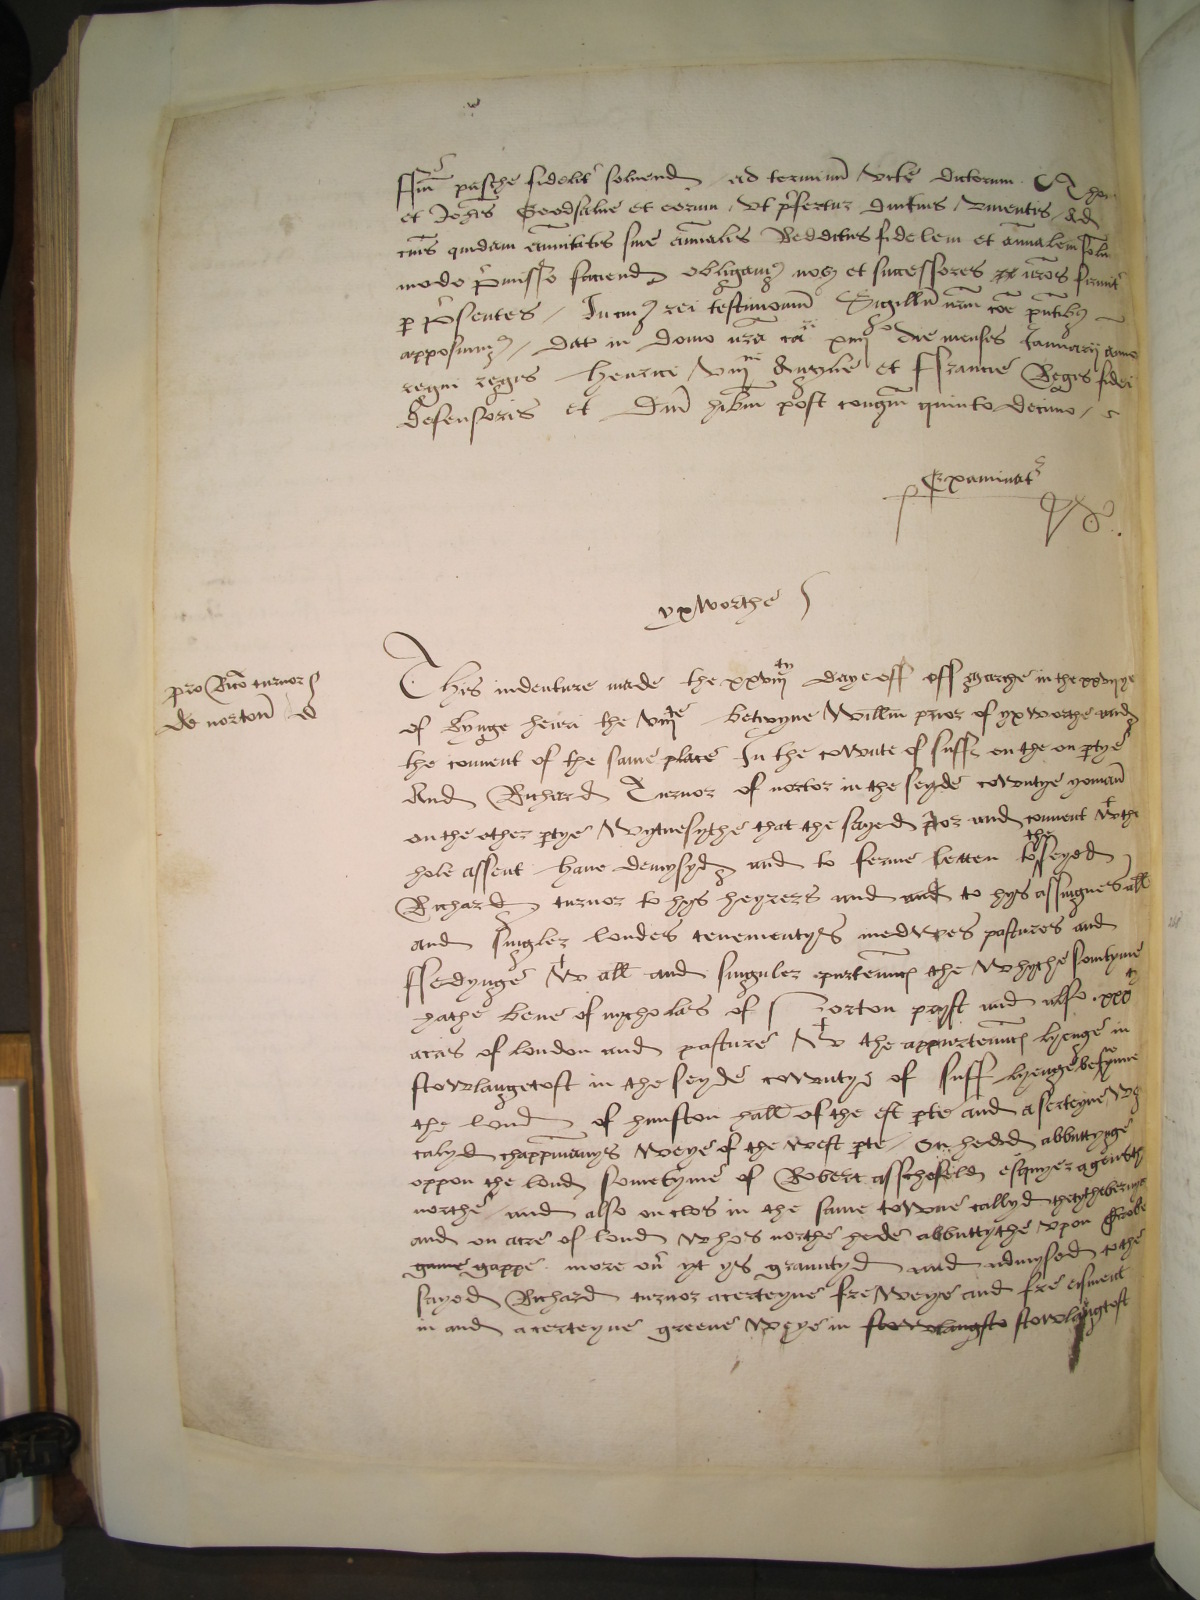 pasche fidelit solvend ad terminu vite dictorum Thom
et Johis Goodsalve et eorum, ut prfertur diutius, viventis, Ad
cuis quidam anuitatis sive annalis Redditus fidelem et annalem solu
modo pmisso faciend obligam nos et successores nros firmit
p psentes / In cui rei testimoniu Sigillu nrm coe pntibz
apposuim / dat in domo nra xiiij die menses Januarij anno
regni regis Henrici viij Anglie et Francie Regis fidei
defensoris et Dni hibn post conqm quinto decimo /
Examinat
yxworthe
pro Rico turnor
de norton
This indenture made the xxviij day eoff off marche in the xxvij ye
of kynge henri the viij betwyne Willm prior of yxworthe and
the convent of the same place In the cownte of suff on the on ptye
And Richard Turnor of nortor in the seyde cowntye yoman
on the other ptye Wytnesythe that the sayed prior and convent wt the
hole assent have demysyd and to ferme letten to the seyed
Richard turnor to hys heyrers and and to hys assingnes all
and singler londes tenementys medwes pastures and
ffedynge wt all and singuler apurtenn the whyche somtyme
hathe bene of nycholas of Norton pryst and also xxx
acris of london and pasture wt the appurtenn lyenge in
stowlangetoft in the seyde cowntye of suff lyenge betwyne
the lond of hunston hall of the est pte and a serteyne wey
calyd chappmanys weye of the west pte / On heded abbuttynge
oppon the lond sometyme of Robert asschefeld esquyer agenst
northe and also on clos in the same towne callyd
and on acre of lond whos northe hede abbuttythe vpon
game gappe more ov yt ys grauntyd and admysed to the
sayed Richard turnor a certeyne fre weye and fre esment
in and a certeyne grene weye in stowlangsto stowlangtoft